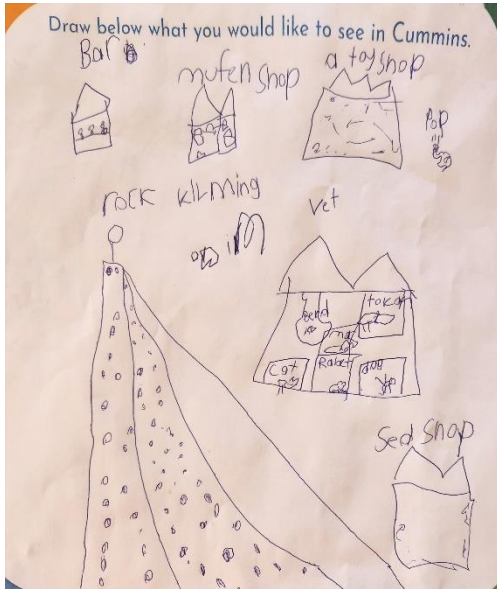 Draw below what you would like to see in Cummins.
Bar
mufen shop
a toy shop
Pop
rock kilming
vet
Berd
Cat
Rabet
dog
sed shop